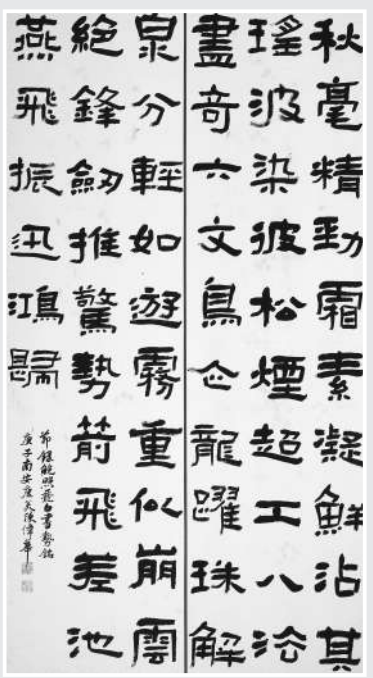 秋毫精勁霜素凝鮮沾其
瑤波染彼松煙超工八法
盡奇六文鳥企龍躍珠解
泉分輕如遊霧重似崩雲
絕鋒劒推驚勢箭飛差池
燕飛振迅鴻歸
節錄鮑照飛白書勢銘
庚子南安陳偉華